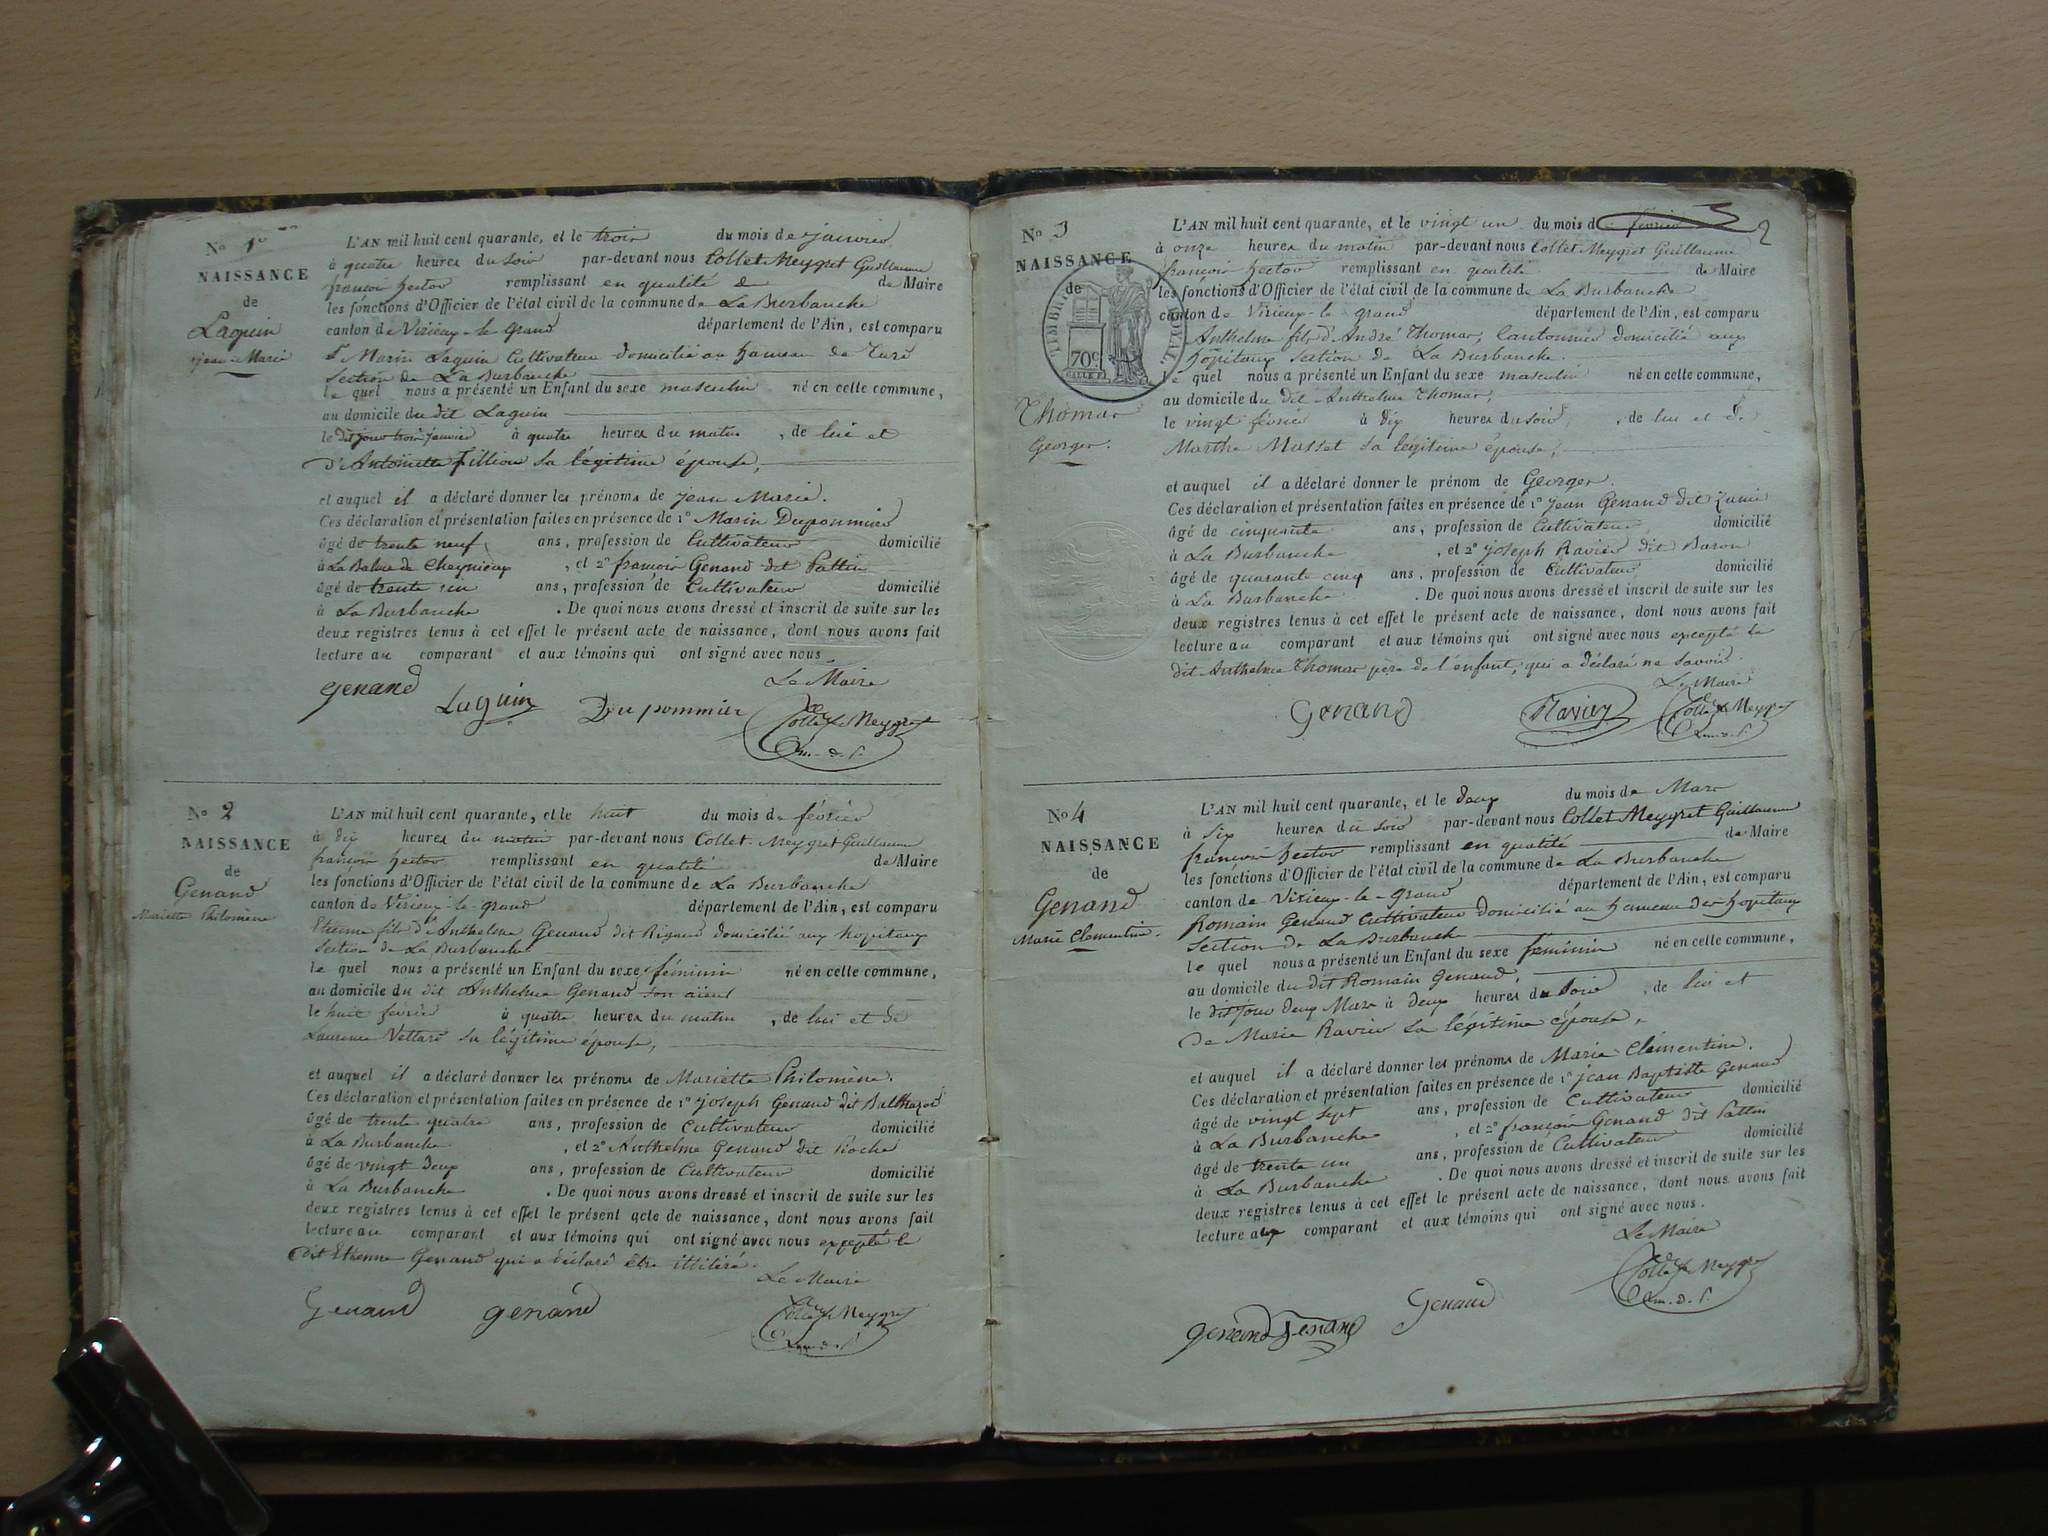 No 1er
NAISSANCE
de
Laguin
jean-Marie
L'AN mil huit cent quarante, et le trois du mois de janvier
à quatre heures du soir par-devant nous Collet-Meygret Guillaume
françois hector remplissant en qualité de de Maire
les fonctions d'Officier de l'état civil de la commune de La Burbanche
canton de Virieux-le-grand département de l'Ain, est comparu
St Marin Laguin Cultivateur domicilié au hameau de
Section de La Burbanche
le quel nous a présenté un Enfant du sexe masculin né en cette commune,
au domicile du dit Laguin
le dit jour trois janvier à quatre heures du matin, de lui et
d'Antoinette Fillion sa légitime épouse,
et auquel il a déclaré donner les prénoms de jean Marie.
Ces déclaration et présentation faites en présence de 1º Marin Dupommier
âgé de trente neuf ans, profession de Cultivateur domicilié
à La Balme de Cheynieux, et 2º françois Genand dit Pattin
âgé de trente un ans, profession de Cultivateur domicilié
à La Burbanche. De quoi nous avons dressé et inscrit de suite sur les
deux registres tenus à cet effet le présent acte de naissance, dont nous avons fait
lecture au comparant et aux témoins qui ont signé avec nous
Le Maire
genand Laguin Dupommier Collet-Meygret
No 2
NAISSANCE
de
Genand
Mariette Philomène
L'AN mil huit cent quarante, et le huit du mois de février
à dix heures du matin par-devant nous Collet-Meygret Guillaume
françois hector remplissant en qualité de Maire
les fonctions d'Officier de l'état civil de la commune de La Burbanche
canton de Virieux-le-grand département de l'Ain, est comparu
Etienne fils d'Anthelme Genand dit Rigaud domicilié aux hopitaux
Section de La Burbanche
le quel nous a présenté un Enfant du sexe féminin né en cette commune,
au domicile du dit Anthelme Genand son aïeul
le huit février à quatre heures du matin, de lui et de
Laurence Vettard sa légitime épouse,
et auquel il a déclaré donner les prénoms de Mariette Philomène.
Ces déclaration et présentation faites en présence de 1º joseph Genand dit Balthazard
âgé de trente quatre ans, profession de Cultivateur domicilié
à La Burbanche, et 2º Anthelme Genand dit Roche
âgé de vingt deux ans, profession de Cultivateur domicilié
à La Burbanche. De quoi nous avons dressé et inscrit de suite sur les
deux registres tenus à cet effet le présent acte de naissance, dont nous avons fait
lecture au comparant et aux témoins qui ont signé avec nous excepté le
dit Etienne Genand qui a déclaré être illitéré.
Le Maire
Genand genand Collet-Meygret
2
No 3
NAISSANCE
de
TIMBRE ROYAL
70c
Thomas
Georges.
L'AN mil huit cent quarante, et le vingt un du mois de février
à onze heures du matin par-devant nous Collet-Meygret Guillaume
françois hector remplissant en qualité de Maire
les fonctions d'Officier de l'état civil de la commune de La Burbanche
canton de Virieux-le-grand département de l'Ain, est comparu
Anthelme fils d'André Thomas, Cantonnier domicilié aux
hôpitaux Section de La Burbanche.
le quel nous a présenté un Enfant du sexe masculin né en cette commune,
au domicile du dit Anthelme Thomas,
le vingt février à dix heures du soir, de lui et de
Marthe Masset sa légitime épouse,
et auquel il a déclaré donner le prénom de Georges.
Ces déclaration et présentation faites en présence de 1º jean Genand dit
âgé de cinquante ans, profession de Cultivateur domicilié
à La Burbanche, et 2º joseph Ravier dit Baron
âgé de quarante cinq ans, profession de Cultivateur domicilié
à La Burbanche. De quoi nous avons dressé et inscrit de suite sur les
deux registres tenus à cet effet le présent acte de naissance, dont nous avons fait
lecture au comparant et aux témoins qui ont signé avec nous excepté le
dit Anthelme Thomas père de l'enfant, qui a déclaré ne savoir
Le Maire
Genand Ravier Collet-Meygret
No 4
NAISSANCE
de
Genand
Marie Clementine.
L'AN mil huit cent quarante, et le deux du mois de Mars
à six heures du soir par-devant nous Collet-Meygret Guillaume
françois hector remplissant en qualité de Maire
les fonctions d'Officier de l'état civil de la commune de La Burbanche
canton de Virieux-le-grand département de l'Ain, est comparu
Romain Genand Cultivateur domicilié au hameau des hopitaux
Section de La Burbanche
le quel nous a présenté un Enfant du sexe féminin né en cette commune,
au domicile du dit Romain Genand,
le dit jour deux Mars à deux heures du soir, de lui et
de Marie Ravier sa légitime épouse,
et auquel il a déclaré donner les prénoms de Marie-Clémentine.
Ces déclaration et présentation faites en présence de 1º jean Baptiste Genand
âgé de vingt sept ans, profession de Cultivateur domicilié
à La Burbanche, et 2º françois Genand dit Pattin
âgé de trente un ans, profession de Cultivateur domicilié
à La Burbanche. De quoi nous avons dressé et inscrit de suite sur les
deux registres tenus à cet effet le présent acte de naissance, dont nous avons fait
lecture aux comparant et aux témoins qui ont signé avec nous.
Le Maire
genand genand Genand Collet-Meygret